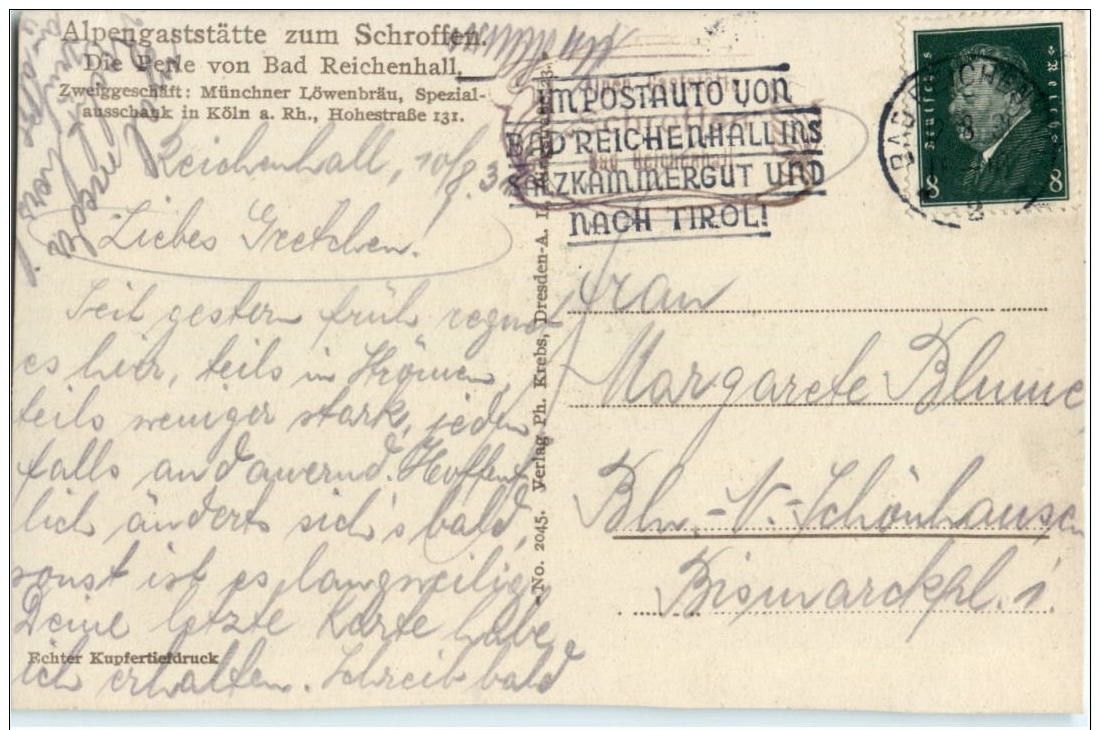 Alpengaststätte zum Schroffen.
Die Perle von Bad Reichenhall,
Zweiggeschäft: Münchner Löwenbräu, Spezial-
ausschank in Köln a. Rh., Hohestraße 131.
Reichenhall, 10/8. 3
Liebes Gretchen!
Seit gestern früh regnet
es hier, teils in Strömen,
teils weniger stark, jeden
falls andauernd. Hoffent
lich änderts sich's bald,
sonst ist es langweilig
Deine letzte Karte habe
ich erhalten. Schreib bald
Echter Kupfertiefdruck
No. 2045. Verlag Ph. Krebs, Dresden-A. 1,
Alpen Gaststätte
Schroffen
Bad Reichenhall
IM POSTAUTO VON
BAD REICHENHALL INS
SALZKAMMERGUT UND
NACH TIROL!
BAD REICHENH
Deutsches Reich
8 8
Frau
Margarete Blume
Bln.-N.-Schönhausen
Bismarckpl. 1.